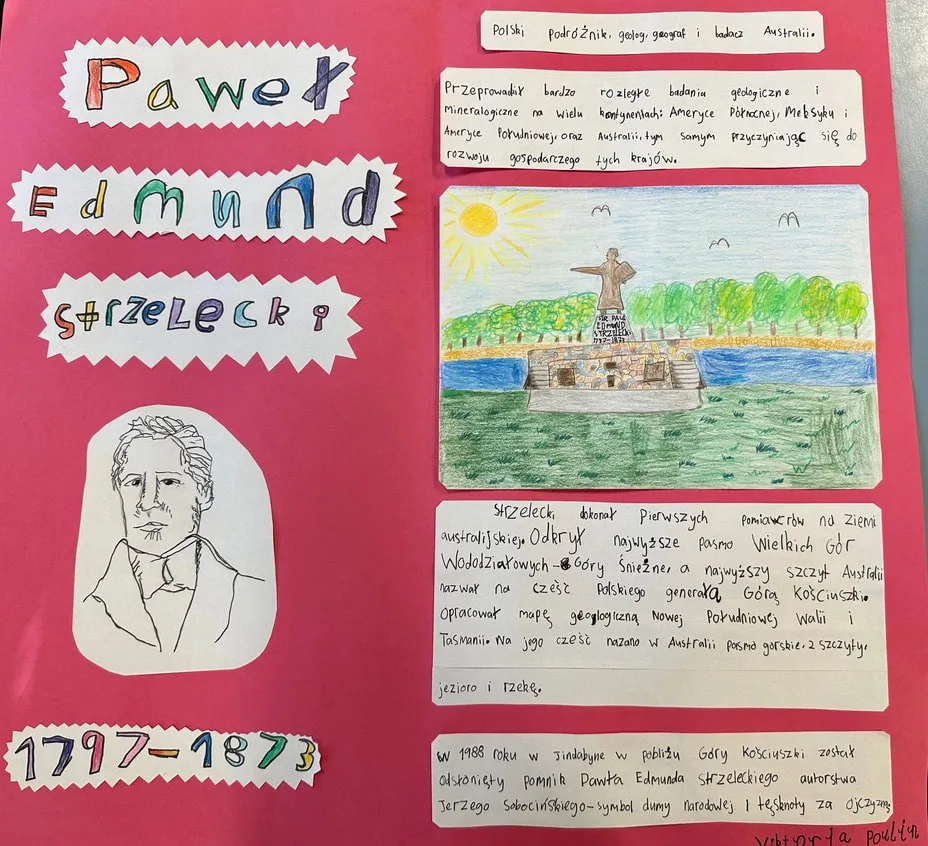 Paweł
Edmund
Strzelecki
1797-1873
Polski podróżnik, geolog, geograf i badacz Australii.
Przeprowadził bardzo rozległe badania geologiczne i
mineralogiczne na wielu kontynentach: Ameryce Północnej, Meksyku i
Ameryce Południowej, oraz Australii, tym samym przyczyniając się do
rozwoju gospodarczego tych krajów.
EDMUND
STRZELECKI
1797-1873
Strzelecki dokonał pierwszych pomiarów na ziemi
australijskiej. Odkrył najwyższe pasmo Wielkich Gór
Wododziałowych - Góry Śnieżne, a najwyższy szczyt Australii
nazwał na cześć Polskiego generała Górą Kościuszki.
Opracował mapę geologiczną Nowej Południowej Walii i
Tasmanii. Na jego cześć nazano w Australii pasmo górskie, 2 szczyty,
jezioro i rzekę.
W 1988 roku w Jindabyne w pobliżu Góry Kościuszki został
odsłonięty pomnik Pawła Edmunda Strzeleckiego autorstwa
Jerzego Sobocińskiego-symbol dumy narodowej i tęsknoty za ojczyzną
Wiktoria